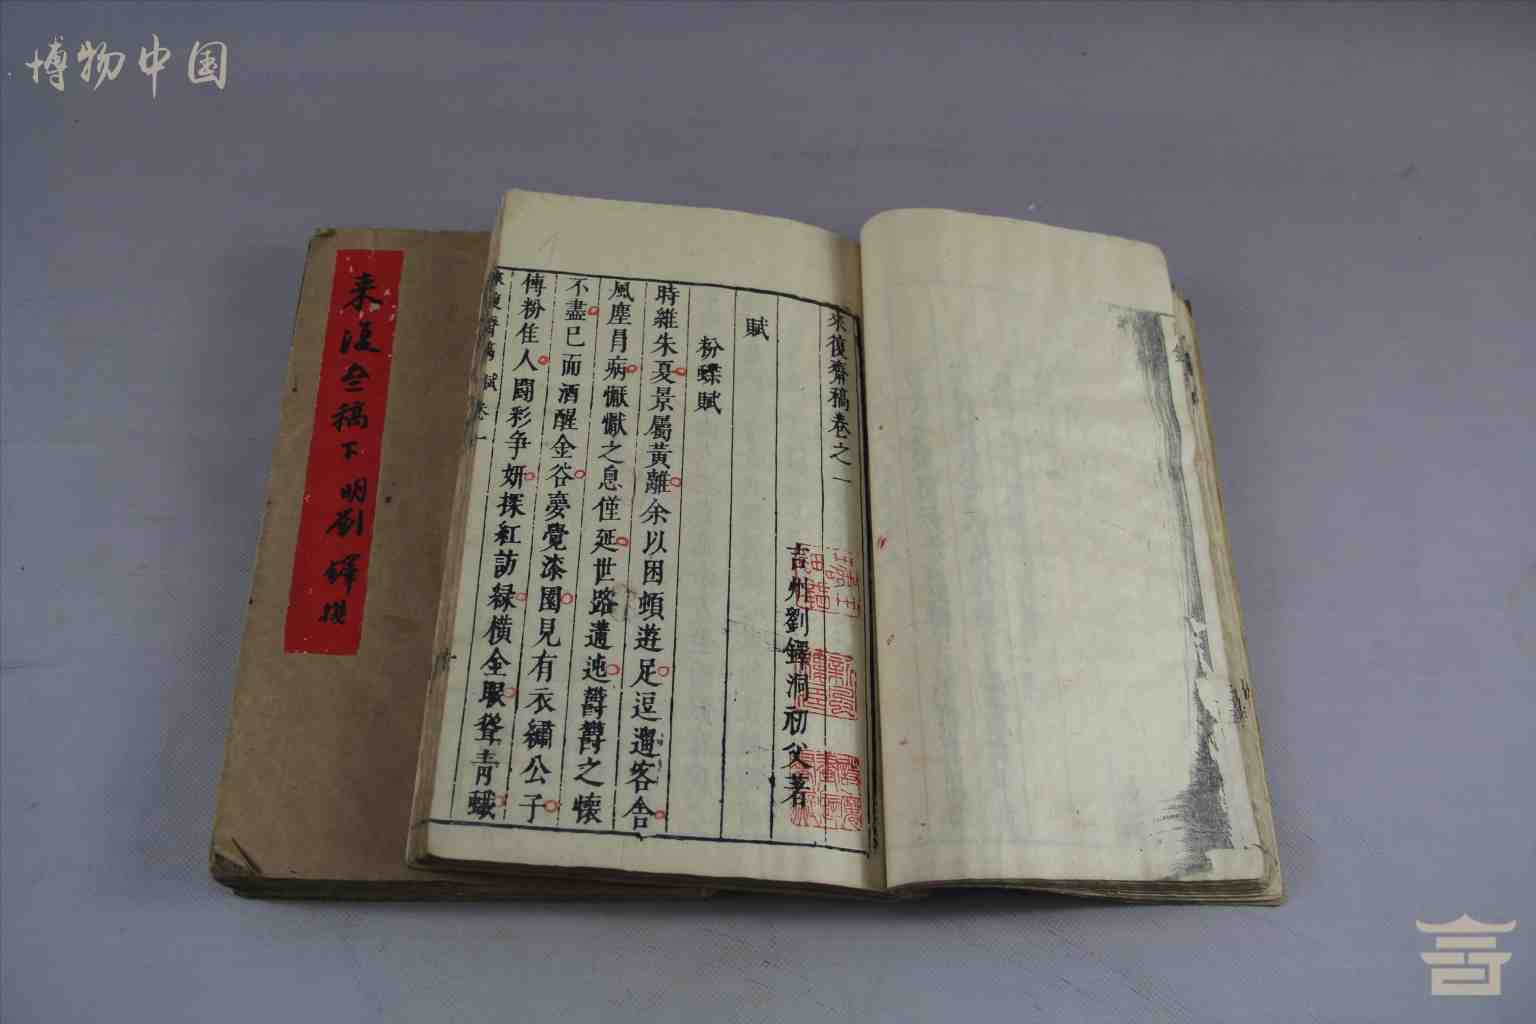 博物中国
来復叁稿下 明劉鐸撰
來復齋稿卷之一
吉州劉鐸洞初父著
賦
粉蝶賦
時維朱夏景屬黄離余以困頓遊足逗遛客舎
風塵肖病懨懨之息僅延世路遭迍欝欝之懐
不盡已而酒醒金谷夣覺漆園見有衣繡公子
傅粉佳人鬪彩争妍探紅訪緑横全眼聳青蛾
來復齋稿 賦卷一